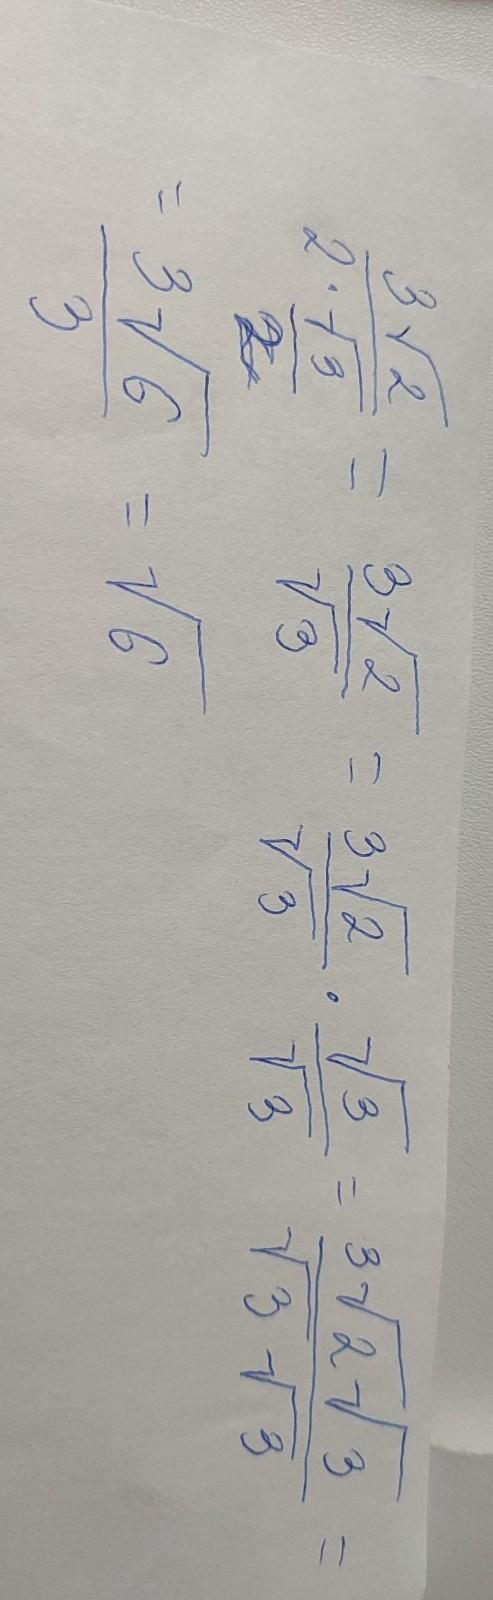 3√2 / (2 · √3/2) = 3√2/√3 = 3√2/√3 · √3/√3 = 3√2√3 / √3√3 =
= 3√6/3 = √6